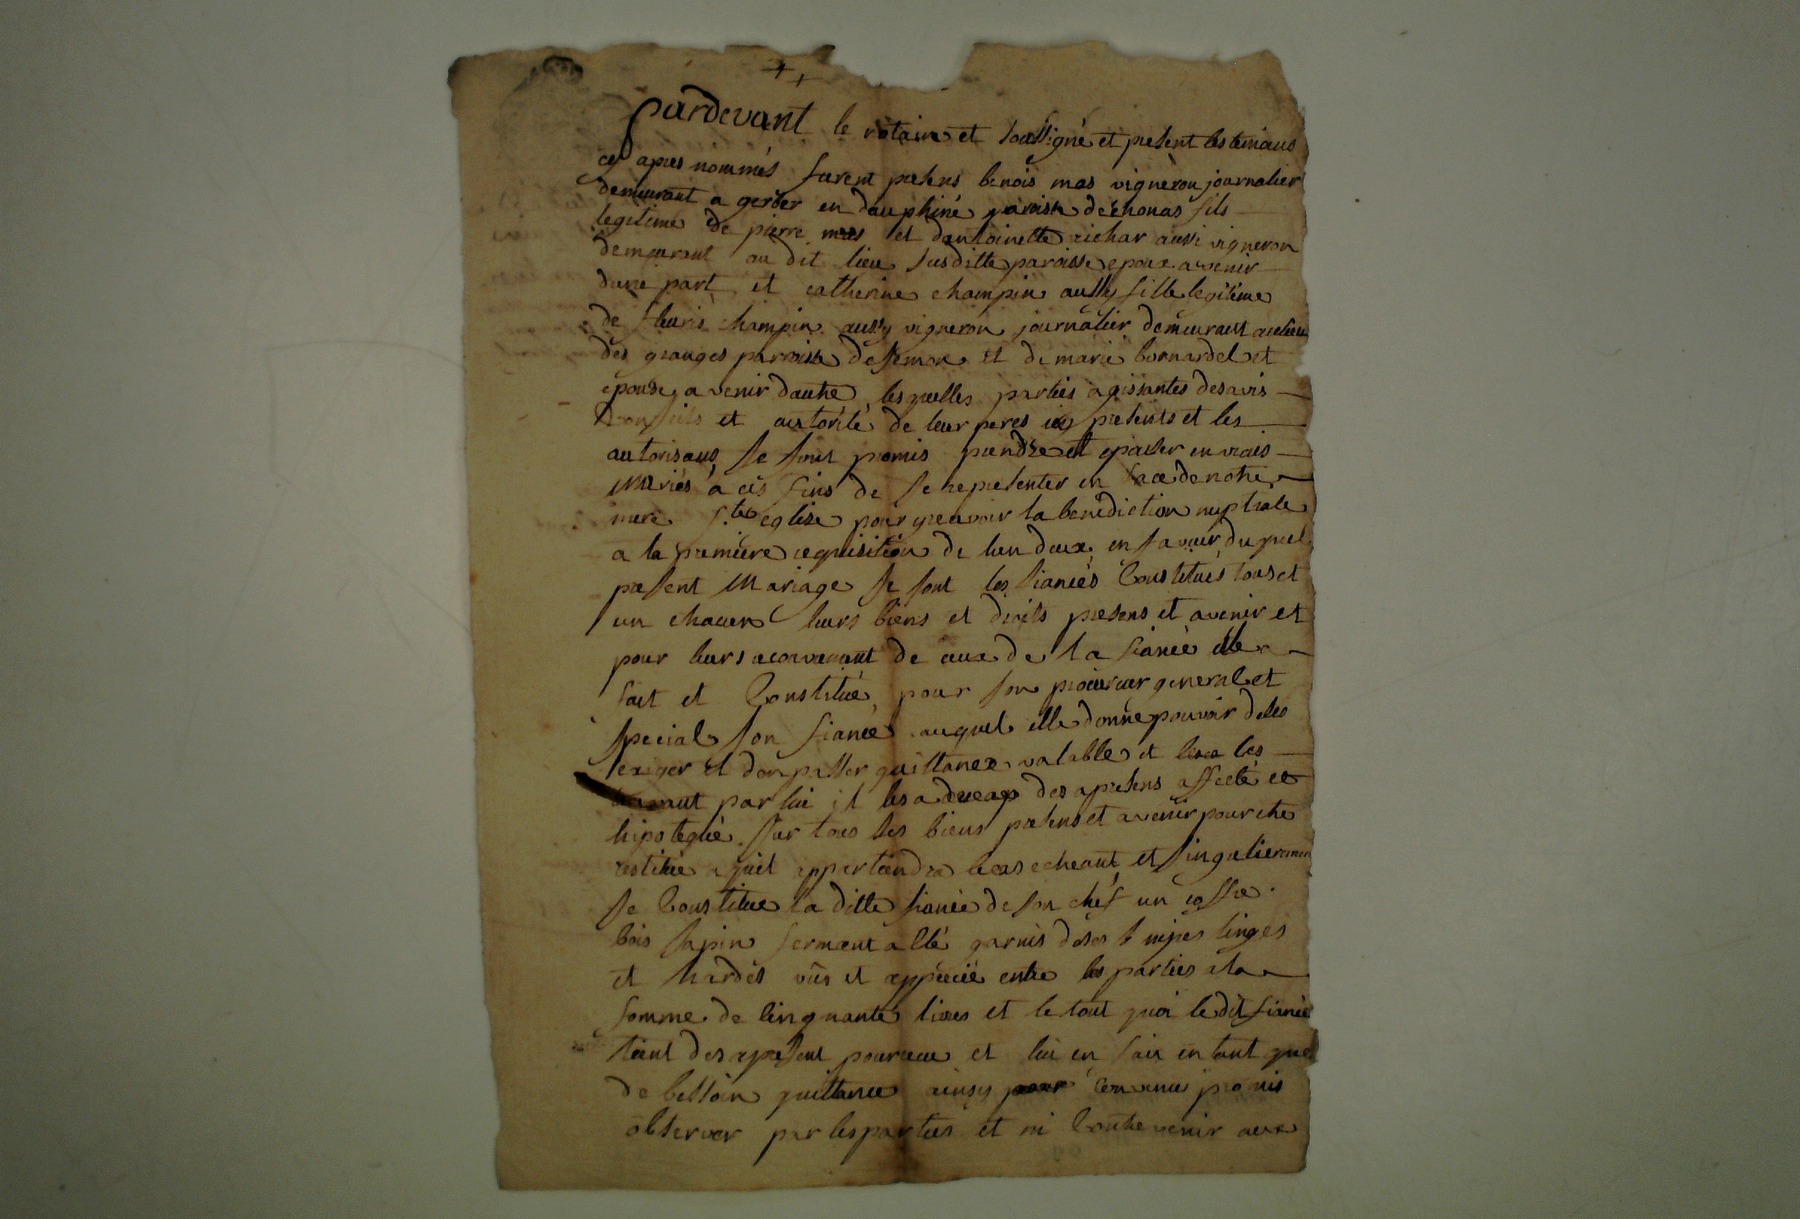 pardevant le notaire et soussigné et present les temoins
cy apres nommés furent presens benois mas vigneron journalier
demeurant a gerber en dauphiné paroisse de chonas fils
legitime de pierre mas et dantoinette richar aussi vigneron
demeurant au dit lieu susditte paroisse epoux avenir
dune part et catherine champin aussy fille legitime
de fleuris champin aussy vigneron journalier demeurant au lieu
des granges parroisse de et de marie bonnardel et
epouse a venir dautre lesquelles parties agissantes des avis
conseils et autorité de leur peres icy presents et les
autorisans se sont promis prendre et epouser en vrais
mariés a ces fins de se representer en face de notre
mere s.te eglise pour y recevoir la benediction nuptiale
a la premiere requisition de lun deux en faveur duquel
present mariage se sont les fiancés constitues tous et
un chacun leurs biens et droits presens et avenir et
pour leurs de ceux de la fiancée elle a
fait et constitué pour son procureur general et
special son fiancé auquel elle donne pouvoir de les
exiger et den passer quittance valable et les
par lui il les a des apresens affecté et
hipotequé sur tous ses biens presens et avenir pour etre
restitué a quil appartiendra le cas echeant et singulieremen
se constitue la ditte fiancée de son chef un coffre
bois sapin fermant a clé garnis de ses nipes linges
et hardes vûs et apprécié entre les parties a la
somme de cinquante livres et le tout quoi le dit fiancé
tient des apresent pour recu et lui en fait en tant que
de bessoin quittance ainsy convenu promis
observer par les parties et ni contrevenir aux